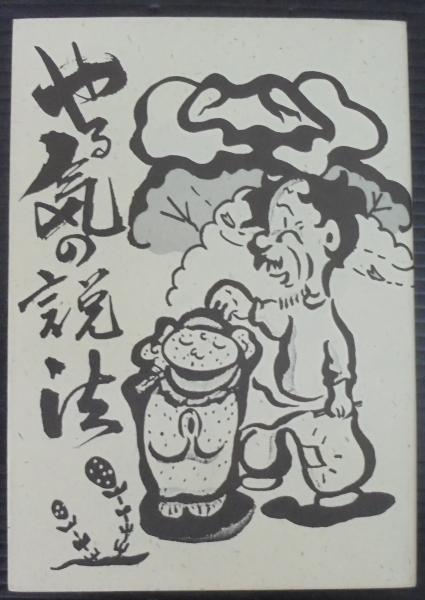 やる気の説法